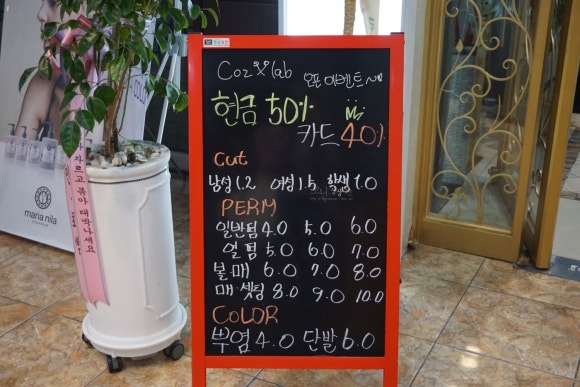 Coz lab 오픈 이벤트~
현금 50%
카드 40%
Cut
남성 1.2 여성 1.5 학생 1.0
PERM
일반펌 4.0 5.0 6.0
열펌 5.0 6.0 7.0
볼·매 6.0 7.0 8.0
매·셋팅 8.0 9.0 10.0
COLOR
뿌염 4.0 단발 6.0
maria nila
자르고 볶아 대박나세요